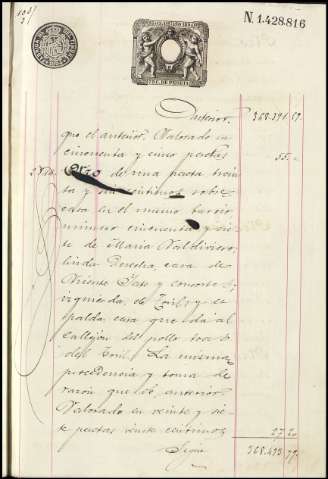 N. 1.428.816
Anterior 368.391 57.
que el anterior. Valorado en
cincuenta y cinco pesetas 55 "
Otro de una peseta trein-
ta y sei centimos, sobre
casa en el mismo barrio
número cincuenta y sie-
te de María Valdivieso,
linda Derecha, casa de
Vicente y consorte,
izquierda, de y es-
palda, casa que dá al
Callejón del pollo ó
del Toril. La misma
procedencia y toma de
razón que el anterior.
Valorado en veinte y sie-
te pesetas veinte centimos. 27 20
Sigue 368.473 77.